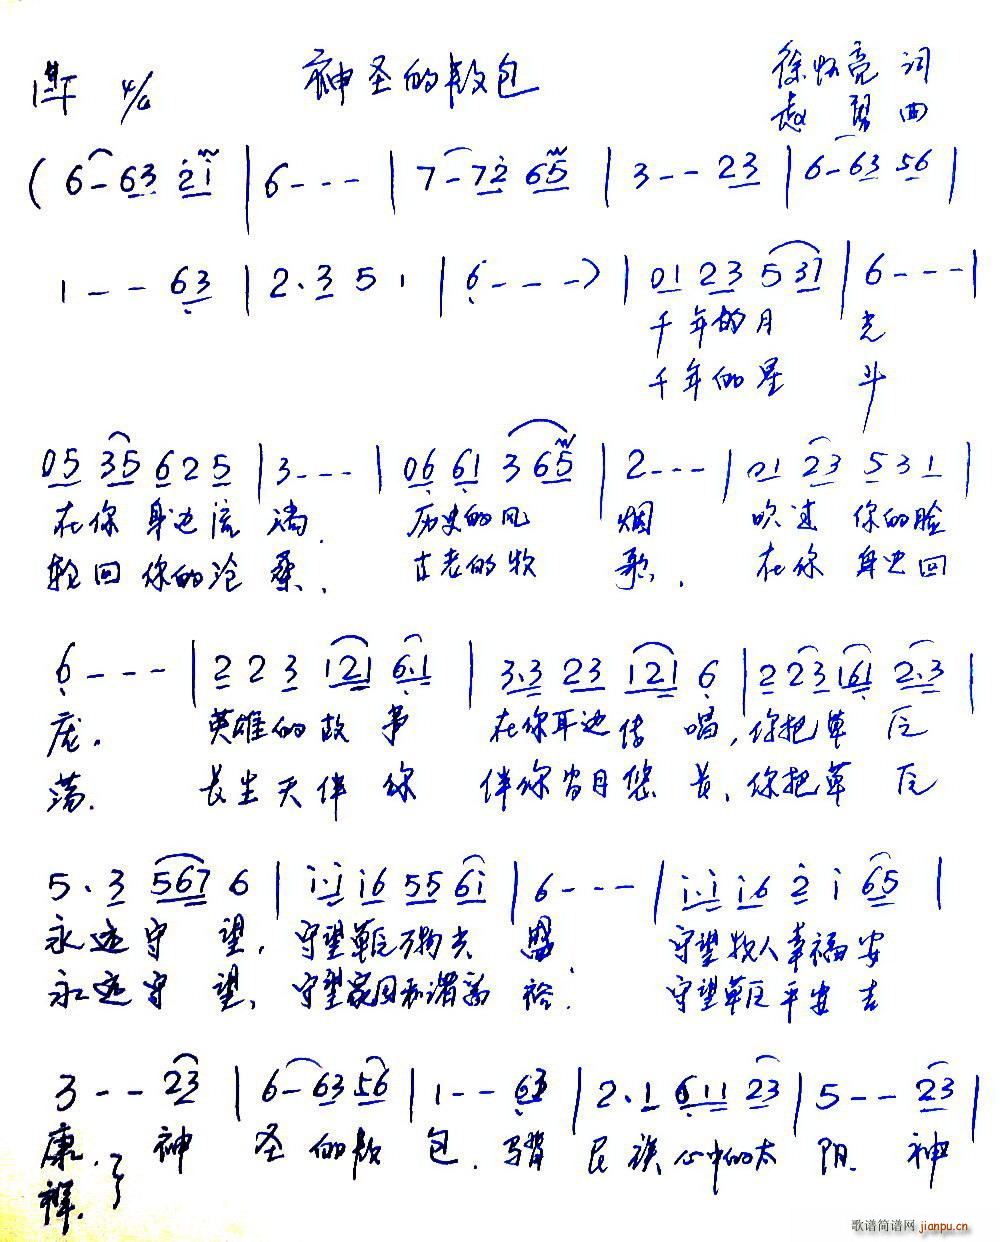 4/4 神圣的敖包 徐怀亮 词
曲
( 6 - 63 2i | 6 - - - | 7 - 72 65 | 3 - - 23 | 6 - 63 56 |
1 - - 63 | 2 . 3 5 1 | 6 - - - ) | 01 23 5 37 | 6 - - - |
千年的月 光
千年的星 斗
05 35 6 2 5 | 3 - - - | 06 61 3 65 | 2 - - - | 01 23 5 3 1 |
在你身边流淌. 历史的风 烟 吹过 你的脸
轮回你的沧桑. 古老的牧 歌. 在你 身边回
6 - - - | 2 2 3 121 6.1 | 3.3 23 121 6 | 2 23 161 2.3 |
庞. 英雄的故 事 在你耳边传 唱, 你把草 原
荡. 长生天伴 你 伴你岁月悠 长, 你把草 原
5 . 3 567 6 | i.i i6 55 6i | 6 - - - | i.i i6 2 i 65 |
永远守 望, 守望草原万物兴 盛. 守望牧人幸福安
永远守 望, 守望家园和谐富 裕. 守望草原平安吉
3 - - 23 | 6 - 63 56 | 1 - - 63 | 2 . 1 611 23 | 5 - - 23 |
康. 神 圣 的敖 包. 马背 民 族 心中的太 阳. 神
祥.
歌谱简谱网 jianpu.cn